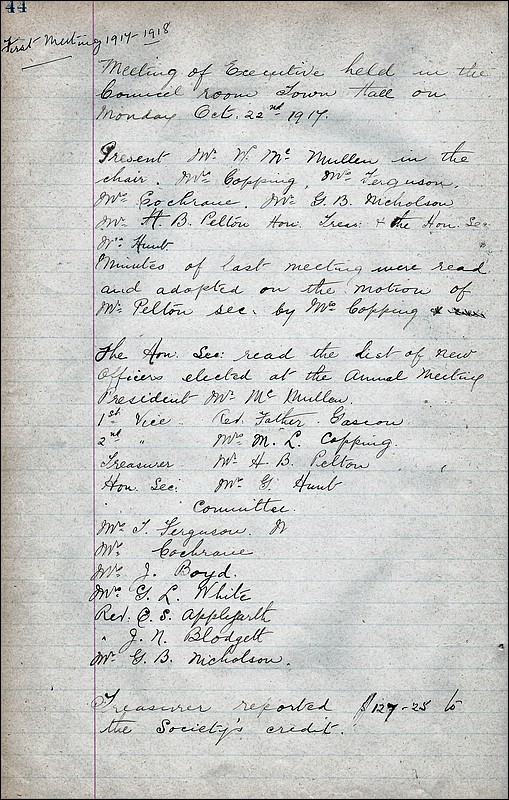 44
First Meeting 1917-1918
Meeting of Executive held in the
Council room Town Hall on
Monday Oct. 22nd 1917.
Present Mr. W. Mc Mullen in the
chair. Mrs Copping, Mrs Ferguson,
Mrs Cochrane, Mr. G. B. Nicholson
Mr. H. B. Pelton Hon. Treas: & the Hon. Sec
Mrs Hunt
Minutes of last meeting were read
and adopted on the motion of
Mr. Pelton sec. by Mrs Copping
The Hon. Sec: read the list of new
Officers elected at the Annual Meeting
President Mr. Mc Mullen.
1st Vice Rev. Father Gascon
2nd " Mrs M. L. Copping.
Treasurer Mr. H. B. Pelton
Hon. Sec: Mrs G. Hunt
Committee.
Mrs T. Ferguson.
Mrs Cochrane
Mrs J. Boyd.
Mrs G. L. White
Rev. E. S. Applegarth
" J. N. Blodgett
Mr. G. B. Nicholson.
Treasurer reported $127-25 to
the Society's credit.